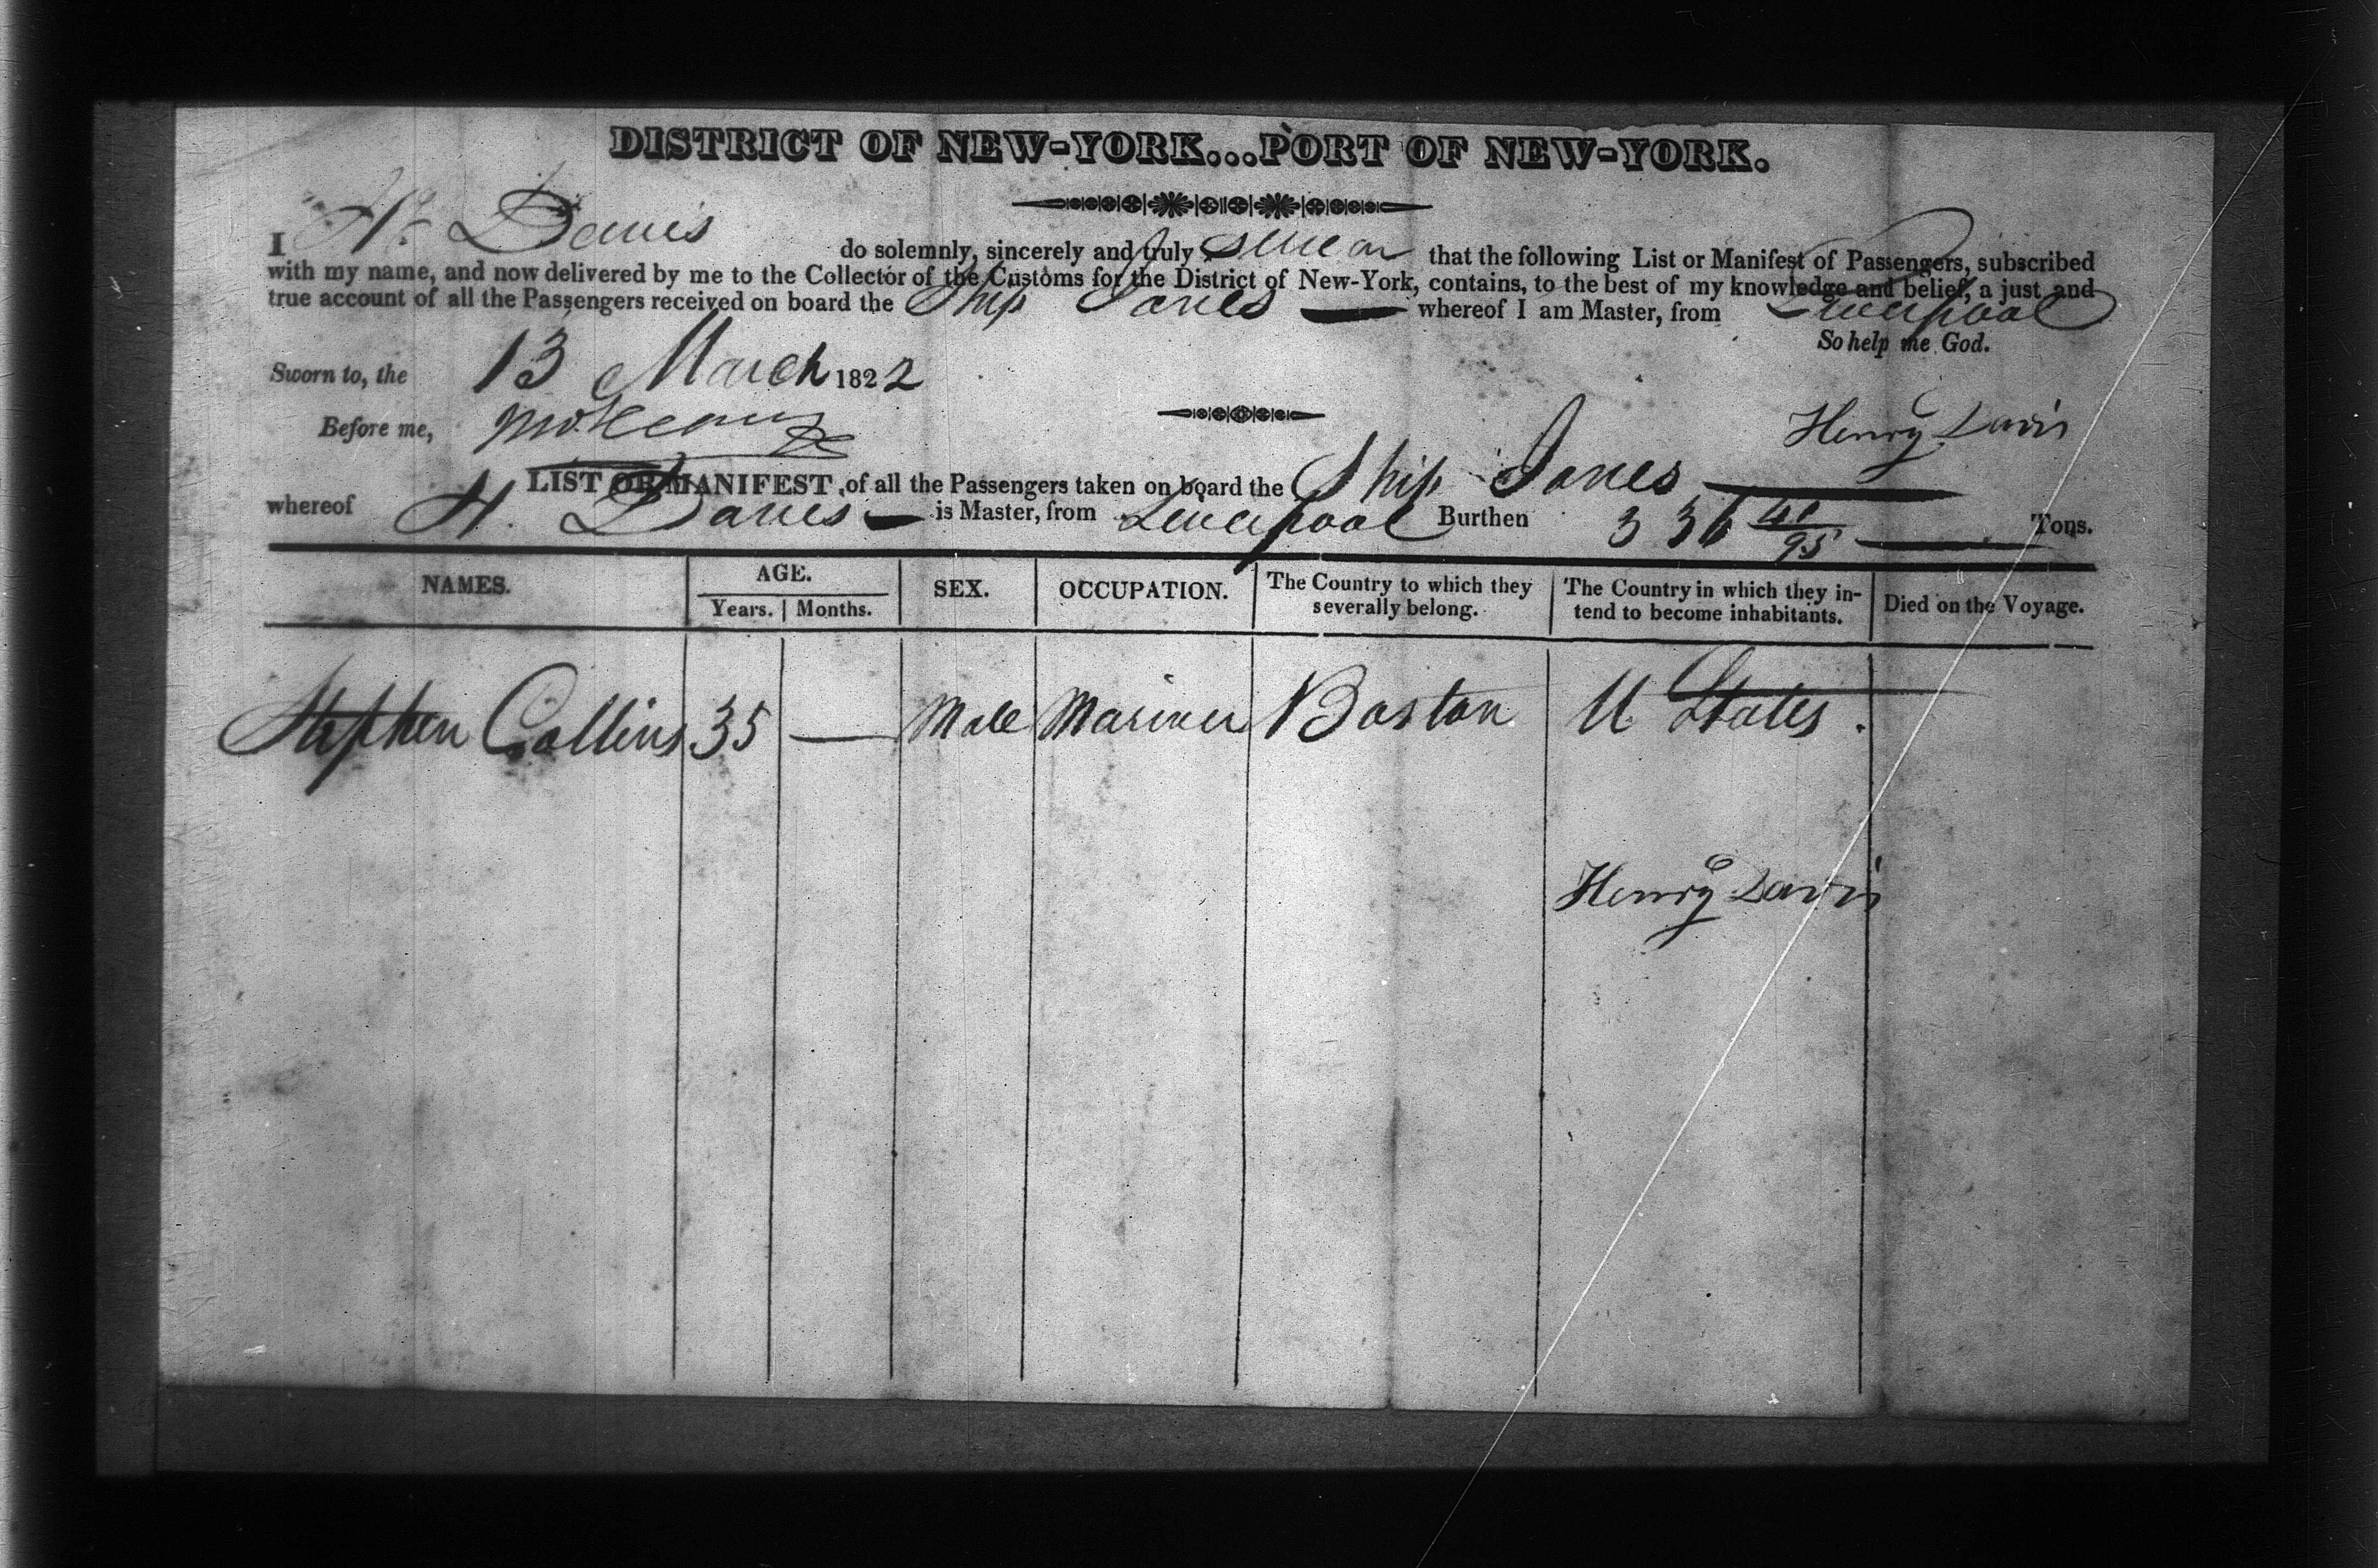 DISTRICT OF NEW-YORK...PORT OF NEW-YORK.
I H. Davis do solemnly, sincerely and truly swear that the following List or Manifest of Passengers, subscribed
with my name, and now delivered by me to the Collector of the Customs for the District of New-York, contains, to the best of my knowledge and belief, a just and
true account of all the Passengers received on board the Ship Janes whereof I am Master, from Liverpool
So help me God.
Sworn to, the 13 March 1822
Before me,
Henry Davis
LIST OR MANIFEST, of all the Passengers taken on board the Ship Janes
whereof H. Davis is Master, from Liverpool Burthen 336 41/95 Tons.
NAMES. AGE. SEX. OCCUPATION. The Country to which they severally belong. The Country in which they intend to become inhabitants. Died on the Voyage.
Years. Months.
Stephen Collins 35 — Male Mariner Boston U. States.
Henry Davis